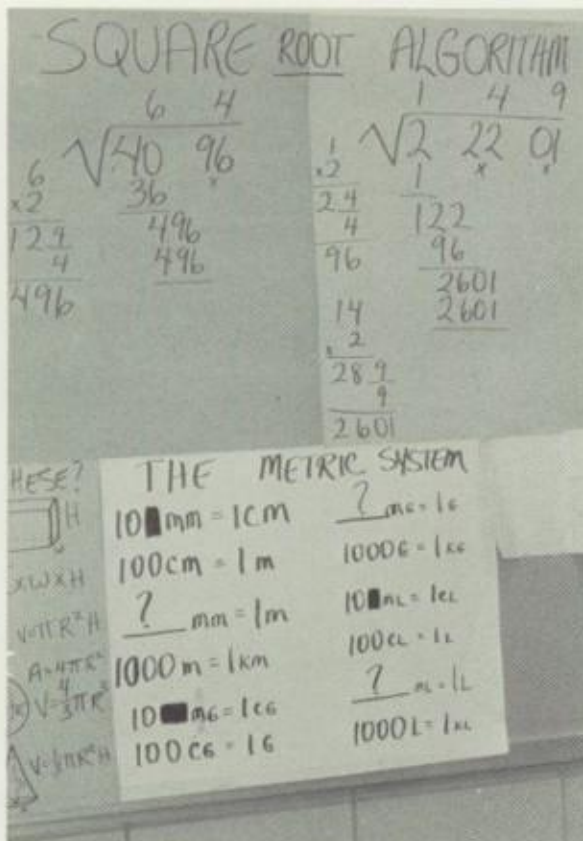 SQUARE ROOT ALGORITHM
6 4
√40 96
36
496
496
6
×2
124
4
496
1 4 9
√2 22 01
1
122
96
2601
2601
1
×2
24
4
96
14
2
289
9
2601
HESE?
H
×W×H
V=πR²H
A=4πR²
V=4/3πR³
V=⅓πR²H
THE METRIC SYSTEM
10 mm = 1cm
100cm = 1m
? mm = 1m
1000m = 1km
10 mG = 1cG
100cG = 1G
? mG = 1G
1000G = 1KG
10 mL = 1cL
100cL = 1L
? mL = 1L
1000L = 1KL